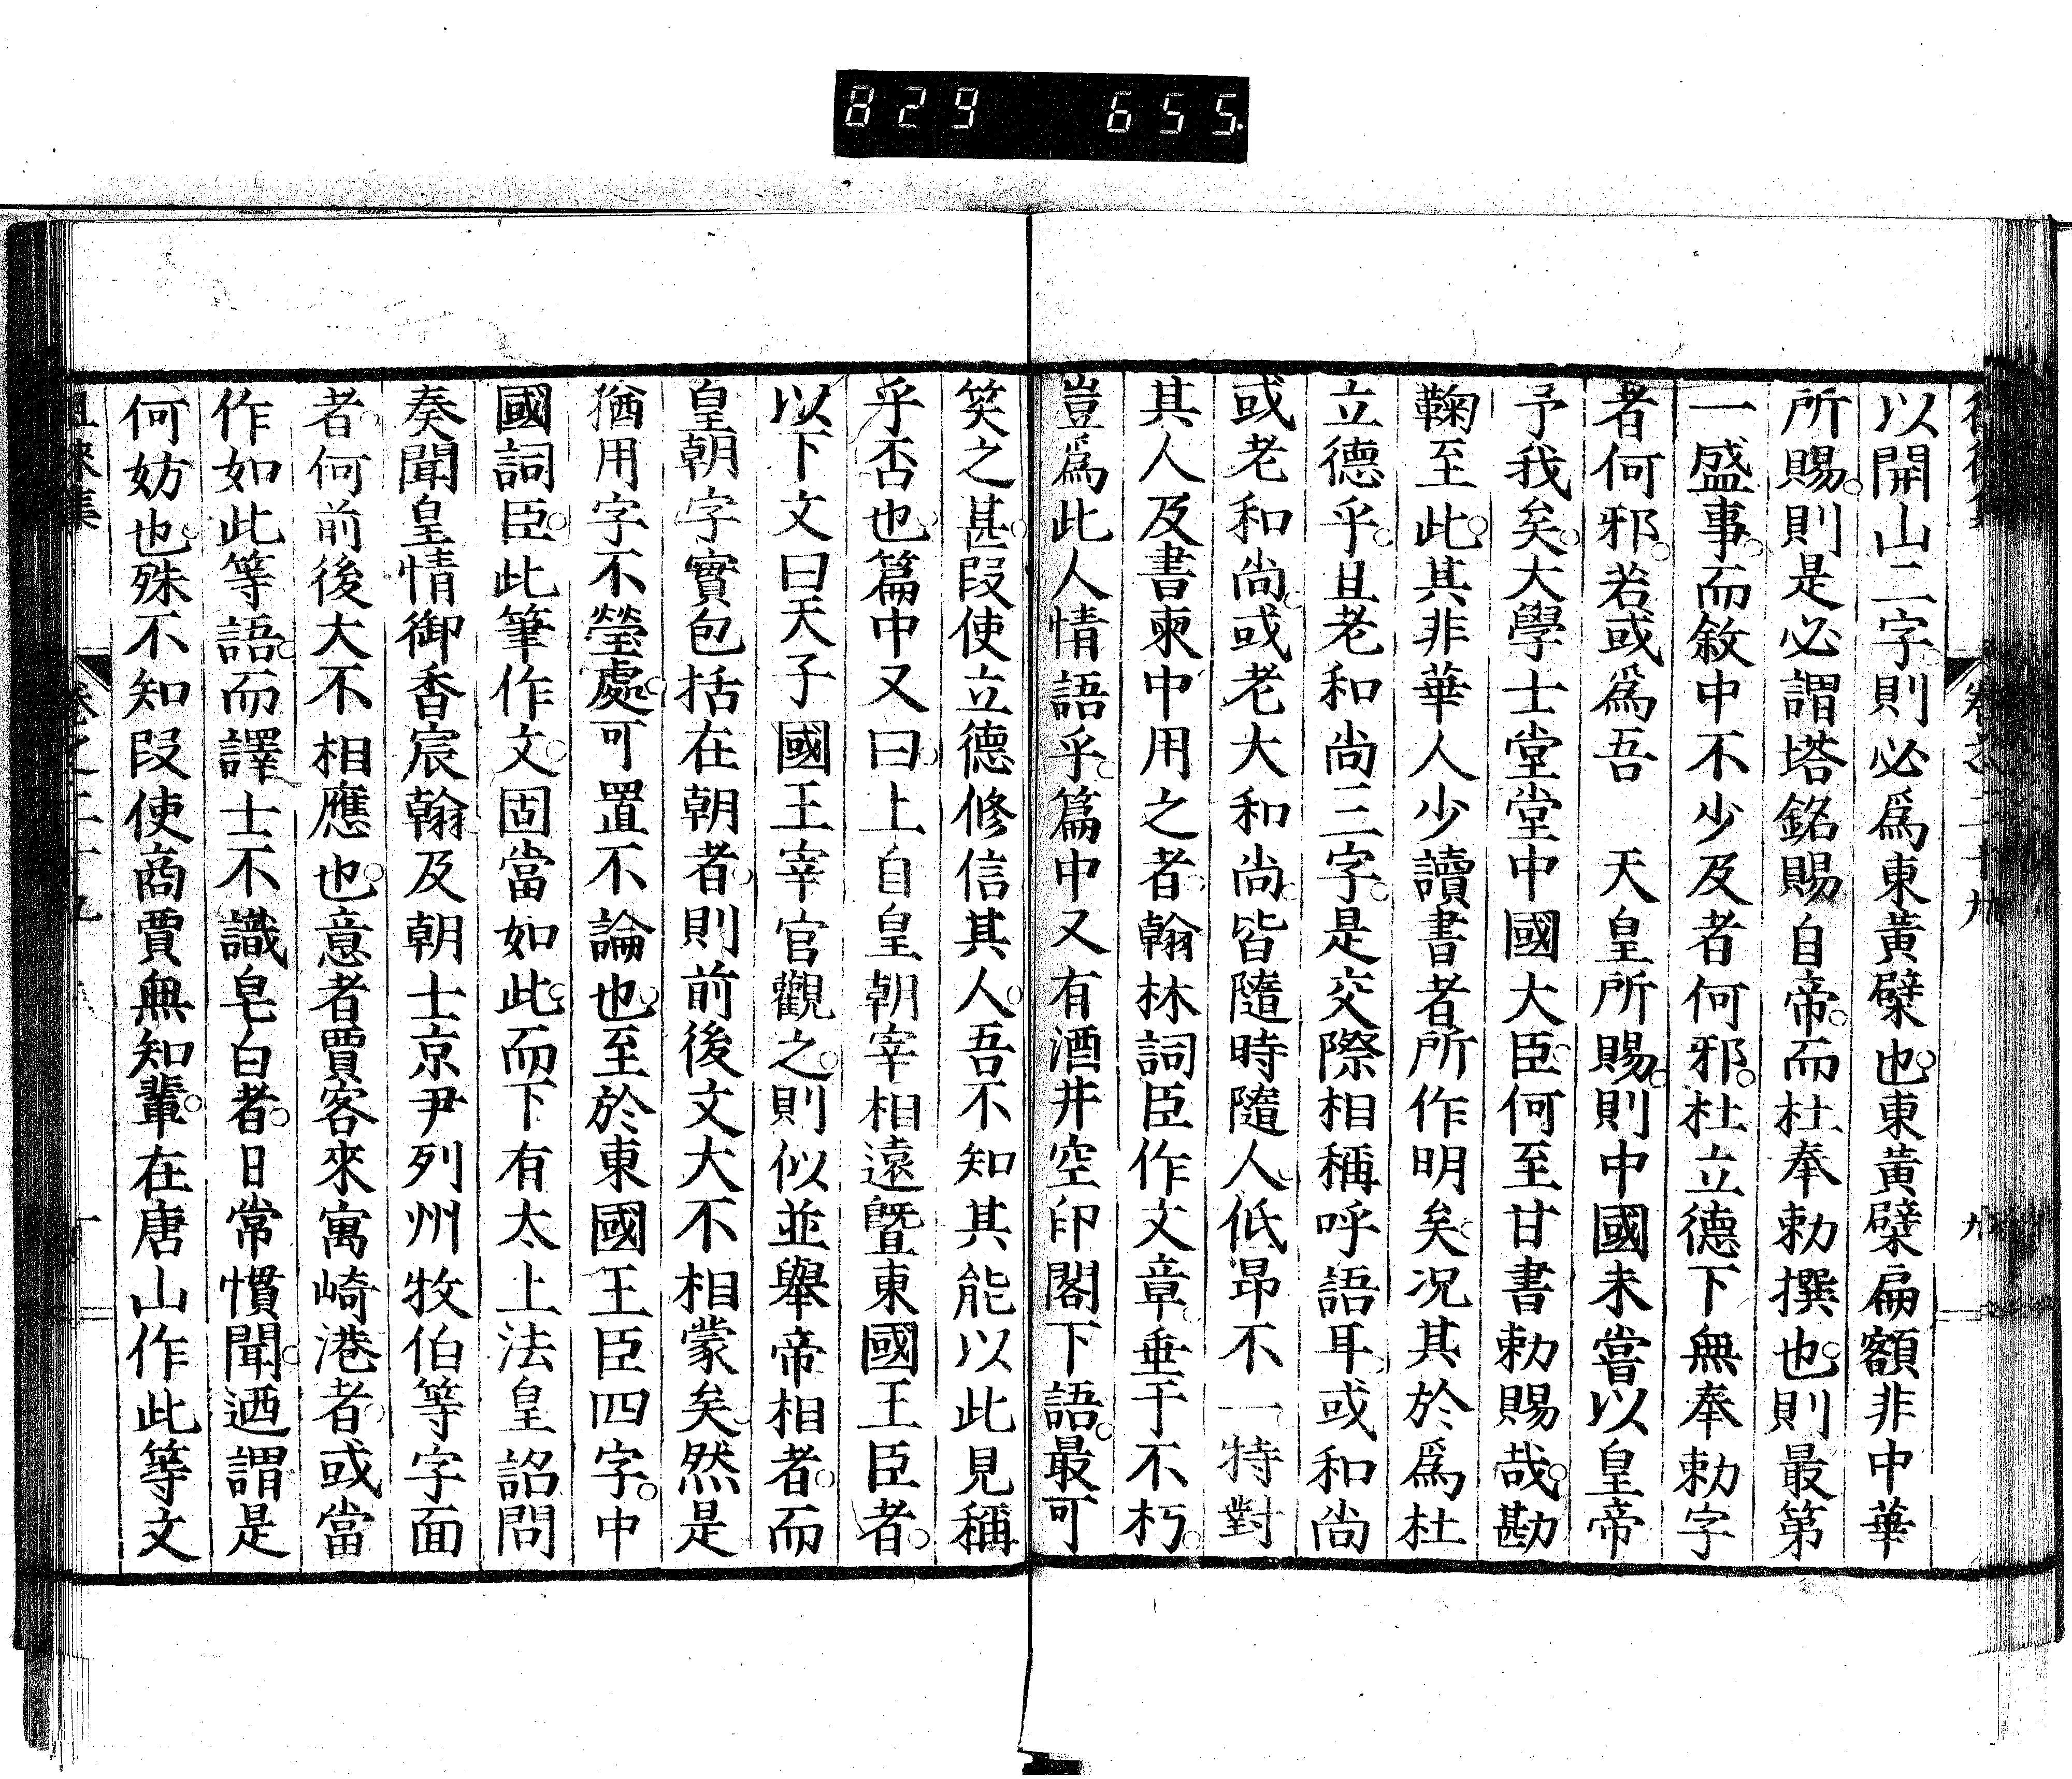 829 655
以開山二字則必爲東黃檗也東黃檗扁額非中華
所賜則是必謂塔銘賜自帝而杜奉勅撰也則最第
一盛事而敘中不少及者何邪杜立德下無奉勅字
者何邪若或爲吾　天皇所賜則中國未嘗以皇帝
予我矣大學士堂堂中國大臣何至甘書勅賜哉勘
鞠至此其非華人少讀書者所作明矣况其於爲杜
立德乎且老和尚三字是交際相稱呼語耳或和尚
或老和尚或老大和尚皆隨時隨人低昂不一特對
其人及書柬中用之者翰林詞臣作文章垂于不朽
豈爲此人情語乎篇中又有酒井空印閣下語最可
笑之甚叚使立德修信其人吾不知其能以此見稱
乎否也篇中又曰上自皇朝宰相遠曁東國王臣者
以下文曰天子國王宰官觀之則似並舉帝相者而
皇朝字實包括在朝者則前後文大不相蒙矣然是
猶用字不瑩處可置不論也至於東國王臣四字中
國詞臣此筆作文固當如此而下有太上法皇詔問
奏聞皇情御香宸翰及朝士京尹列州牧伯等字面
者何前後大不相應也意者賈客來寓崎港者或當
作如此等語而譯士不識皂白者日常慣聞迺謂是
何妨也殊不知叚使商賈無知輩在唐山作此等文